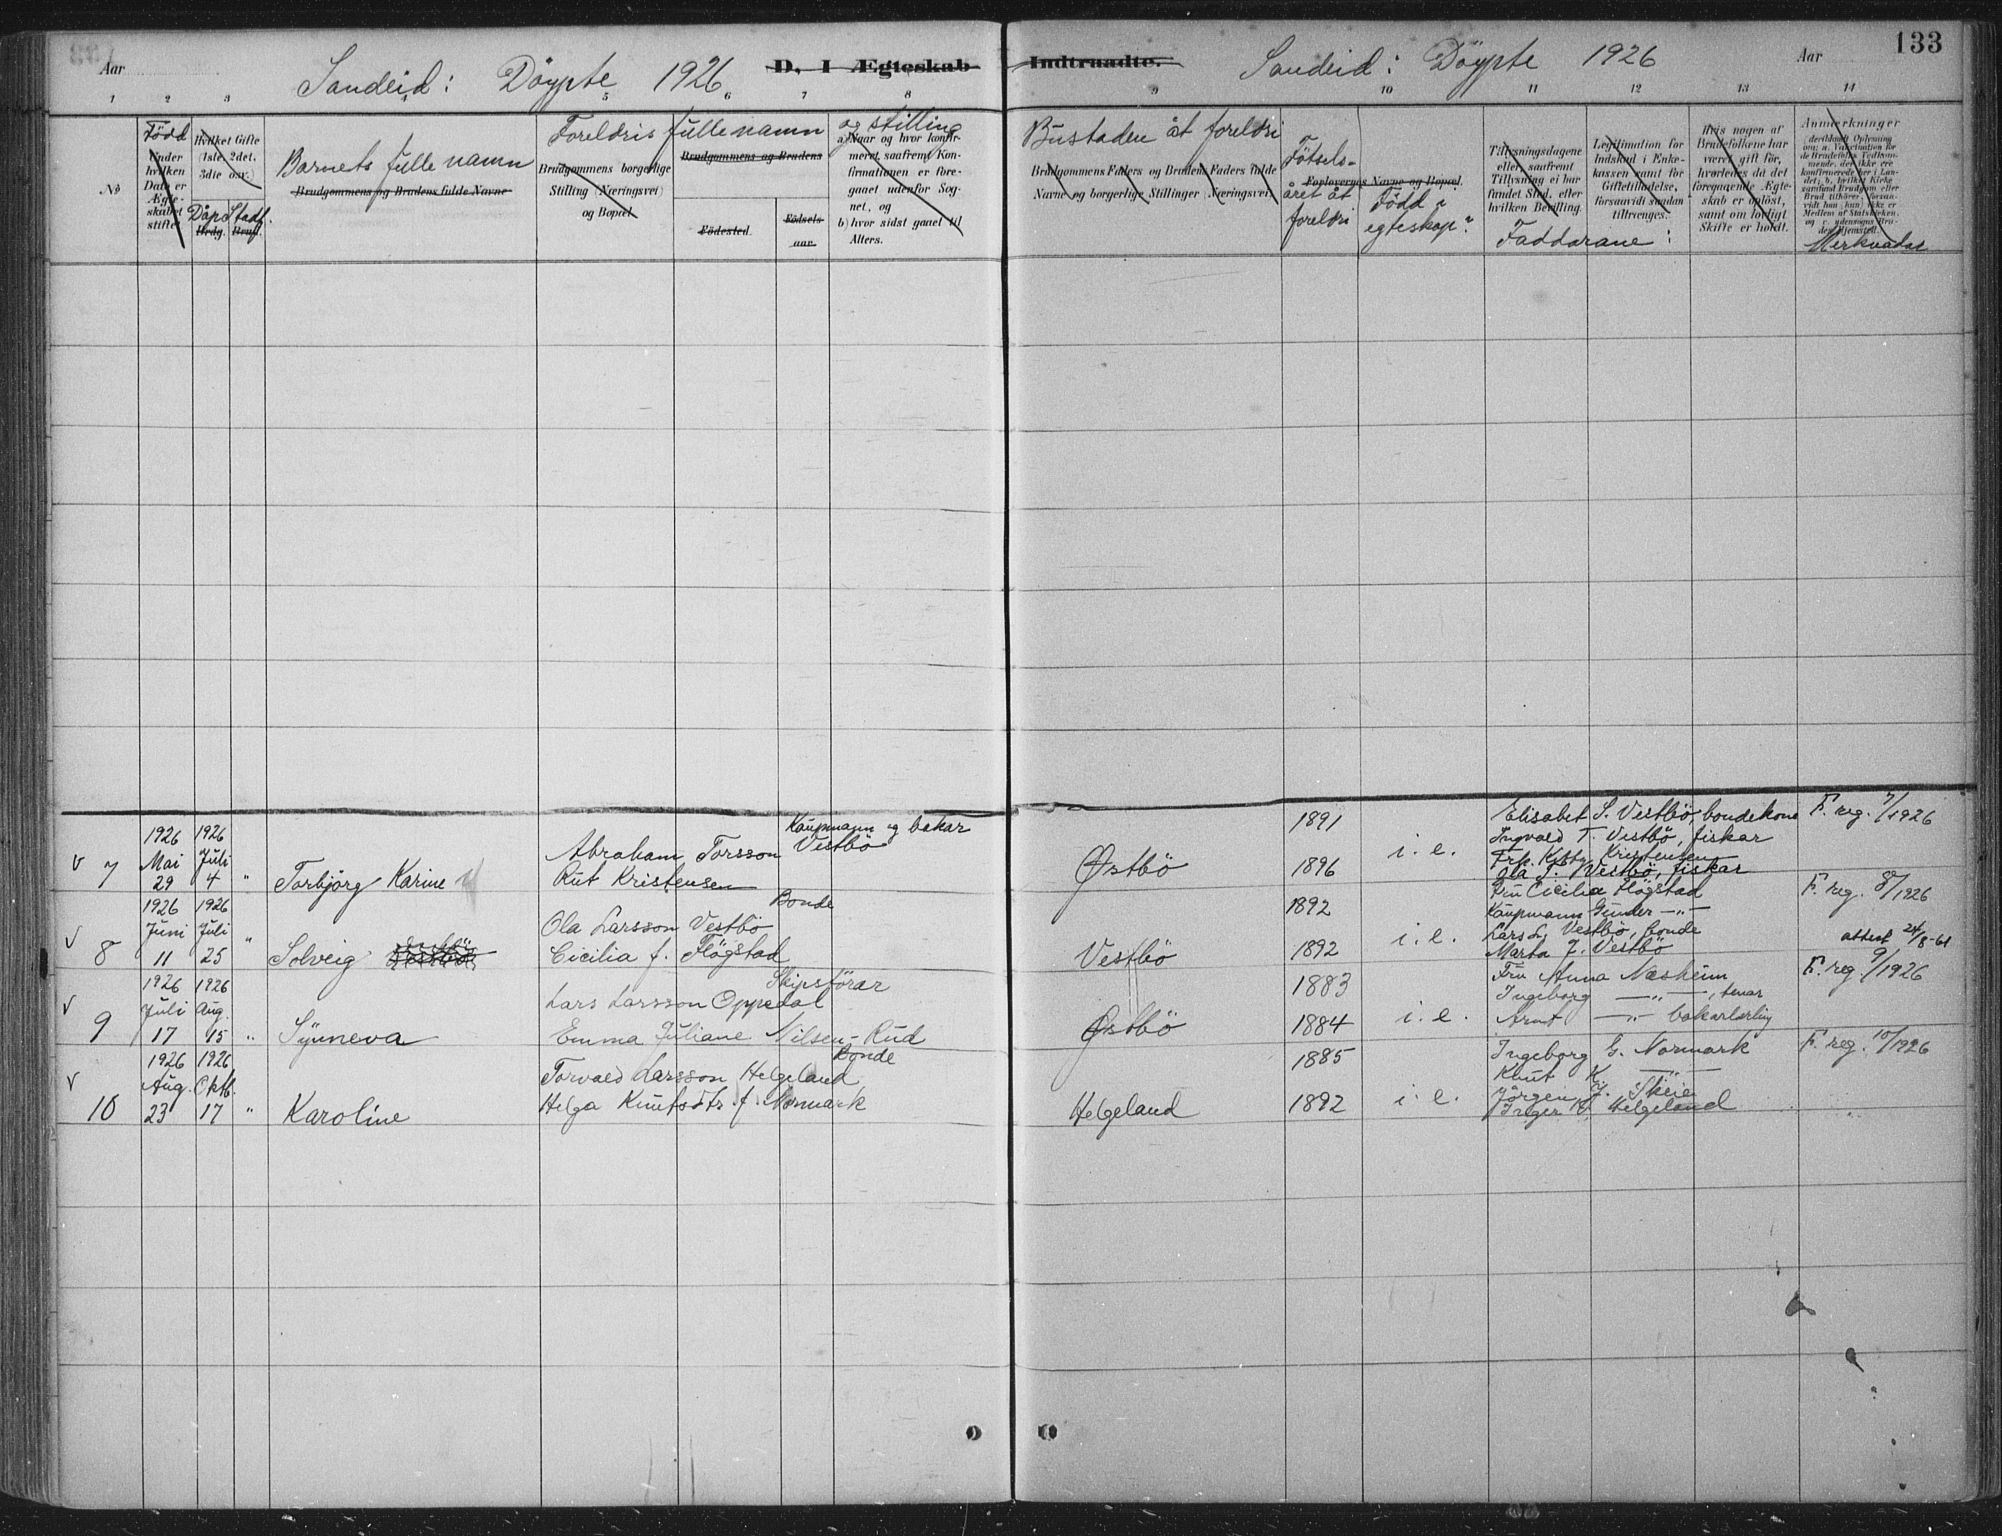 Aar
Sandeid: Döypte 1926
D. I Ægteskab
Indtraadte.
Sandeid: Döypte 1926
Aar
133
1 2 3 4 5 6 7 8
9 10 11 12 13 14
No
Född
Under hvilken Dato er Ægteskabet stiftet
Hvilket Gifte (1ste, 2det, 3die osv.)
Döp Stad
Brdg. Brud.
Barnets fulle namn
Brudgommens og Brudens fulde Navne
Foreldris fulle namn og stilling
Brudgommens borgerlige Stilling (Næringsvei) og Bopæl
Brudgommens og Brudens
Födested.
Födsels-aar.
a) Naar og hvor konfirmeret, saafremt Konfirmationen er foregaaet udenfor Sognet, og
b) hvor sidst gaaet til Alters.
Bustaden åt foreldri
Brudgommens Faders og Brudens Faders fulde Navne og borgerlige Stillinger (Næringsvei).
Fötsels-året åt foreldri
Forlovernes Navne og Bopæl.
Född i egteskap?
Tillysningsdagene eller, saafremt Tillysning ei har fundet Sted, efter hvilken Bevilling.
Faddarane:
Legitimation for Indskud i Enkekassen samt for Giftetilladelse, forsaavidt saadan tiltrænges.
Hvis nogen af Brudefolkene har været gift før, hvorledes da det foregaaende Ægteskab er opløst, samt om lovligt Skifte er holdt.
Anmerkninger
Merknadar
v 7
1926 Mai 29
1926 Juli 4
"
Torbjörg Karine
Kaupmann og bakar
Abraham Torsson Vestbö
Rut Kristensen
Østbö
1891
1896
i. e.
Elisabet S. Vestbö, bondekone
Ingvald T. Vestbö, fiskar
Frk. Kristensen
Ola T. Vestbö, fiskar
F. reg. 7/1926
v 8
1926 Juni 11
1926 Juli 25
"
Solveig
Bonde
Ola Larsson Vestbö
Cicilia f. Flögstad
Vestbö
1892
1892
i. e.
Fru Cicilia Flögstad
Kaupmann Gunder —"—
Lars L. Vestbö, bonde
Marta J. Vestbö
F. reg. 8/1926
attest 24/8-61
v 9
1926 Juli 17
1926 Aug. 15
"
Synneva
Skipsförar
Lars Larsson Oppedal
Emma Juliane Nilsen-Rud
Østbö
1883
1884
i. e.
Fru Anna Næsheim
Ingeborg —"—, tenar
Arnt —"— bakarlærling
F. reg. 9/1926
v 10
1926 Aug. 23
1926 Oktb. 17
"
Karoline
Bonde
Torvald Larsson Helgeland
Helga Knutsdtr. f. Normark
Helgeland
1885
1892
i. e.
Ingeborg G. Normark
Knut K. —"—
Jörgen J. Skeie
Inger Helgeland
F. reg. 10/1926